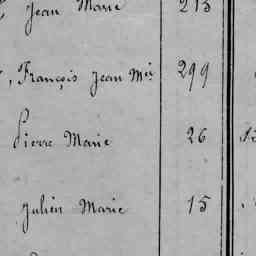 Jean Marie 213
, François Jean Mie 299
Pierre Marie 26
Julien Marie 15